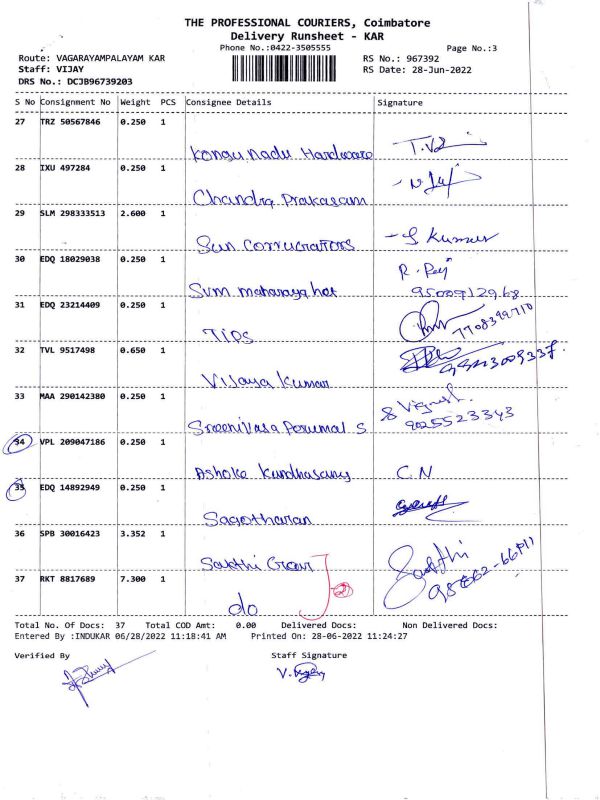 THE PROFESSIONAL COURIERS, Coimbatore
Delivery Runsheet - KAR
Phone No.:0422-3505555 Page No.:3
Route: VAGARAYAMPALAYAM KAR RS No.: 967392
Staff: VIJAY RS Date: 28-Jun-2022
DRS No.: DCJB96739203
S No Consignment No Weight PCS Consignee Details Signature
27 TRZ 50567846 0.250 1
Kongu nadu Hardware
28 IXU 497284 0.250 1
Chandra Prakasam
29 SLM 298333513 2.600 1
Sun Corrucrators S Kumar
30 EDQ 18029038 0.250 1 R. Raj
Svm maharaya hot 9500912968
31 EDQ 23214409 0.250 1
TIPS 7708399710
32 TVL 9517498 0.650 1
Vijaya Kumar
33 MAA 290142380 0.250 1 S Vignesh.
Sreenivasa Perumal S 9025523343
34 VPL 209047186 0.250 1
Ashoke Kandhasamy C.N
35 EDQ 14892949 0.250 1
Sagotharan
36 SPB 30016423 3.352 1
Sakthi Gear Sakthi
37 RKT 8817689 7.300 1
do
Total No. Of Docs: 37 Total COD Amt: 0.00 Delivered Docs: Non Delivered Docs:
Entered By :INDUKAR 06/28/2022 11:18:41 AM Printed On: 28-06-2022 11:24:27
Verified By Staff Signature